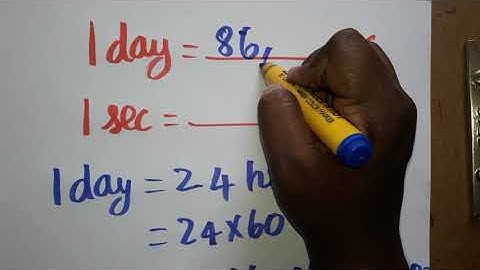 1 day = 86,
1 sec =
1 day = 24 h
= 24 × 60